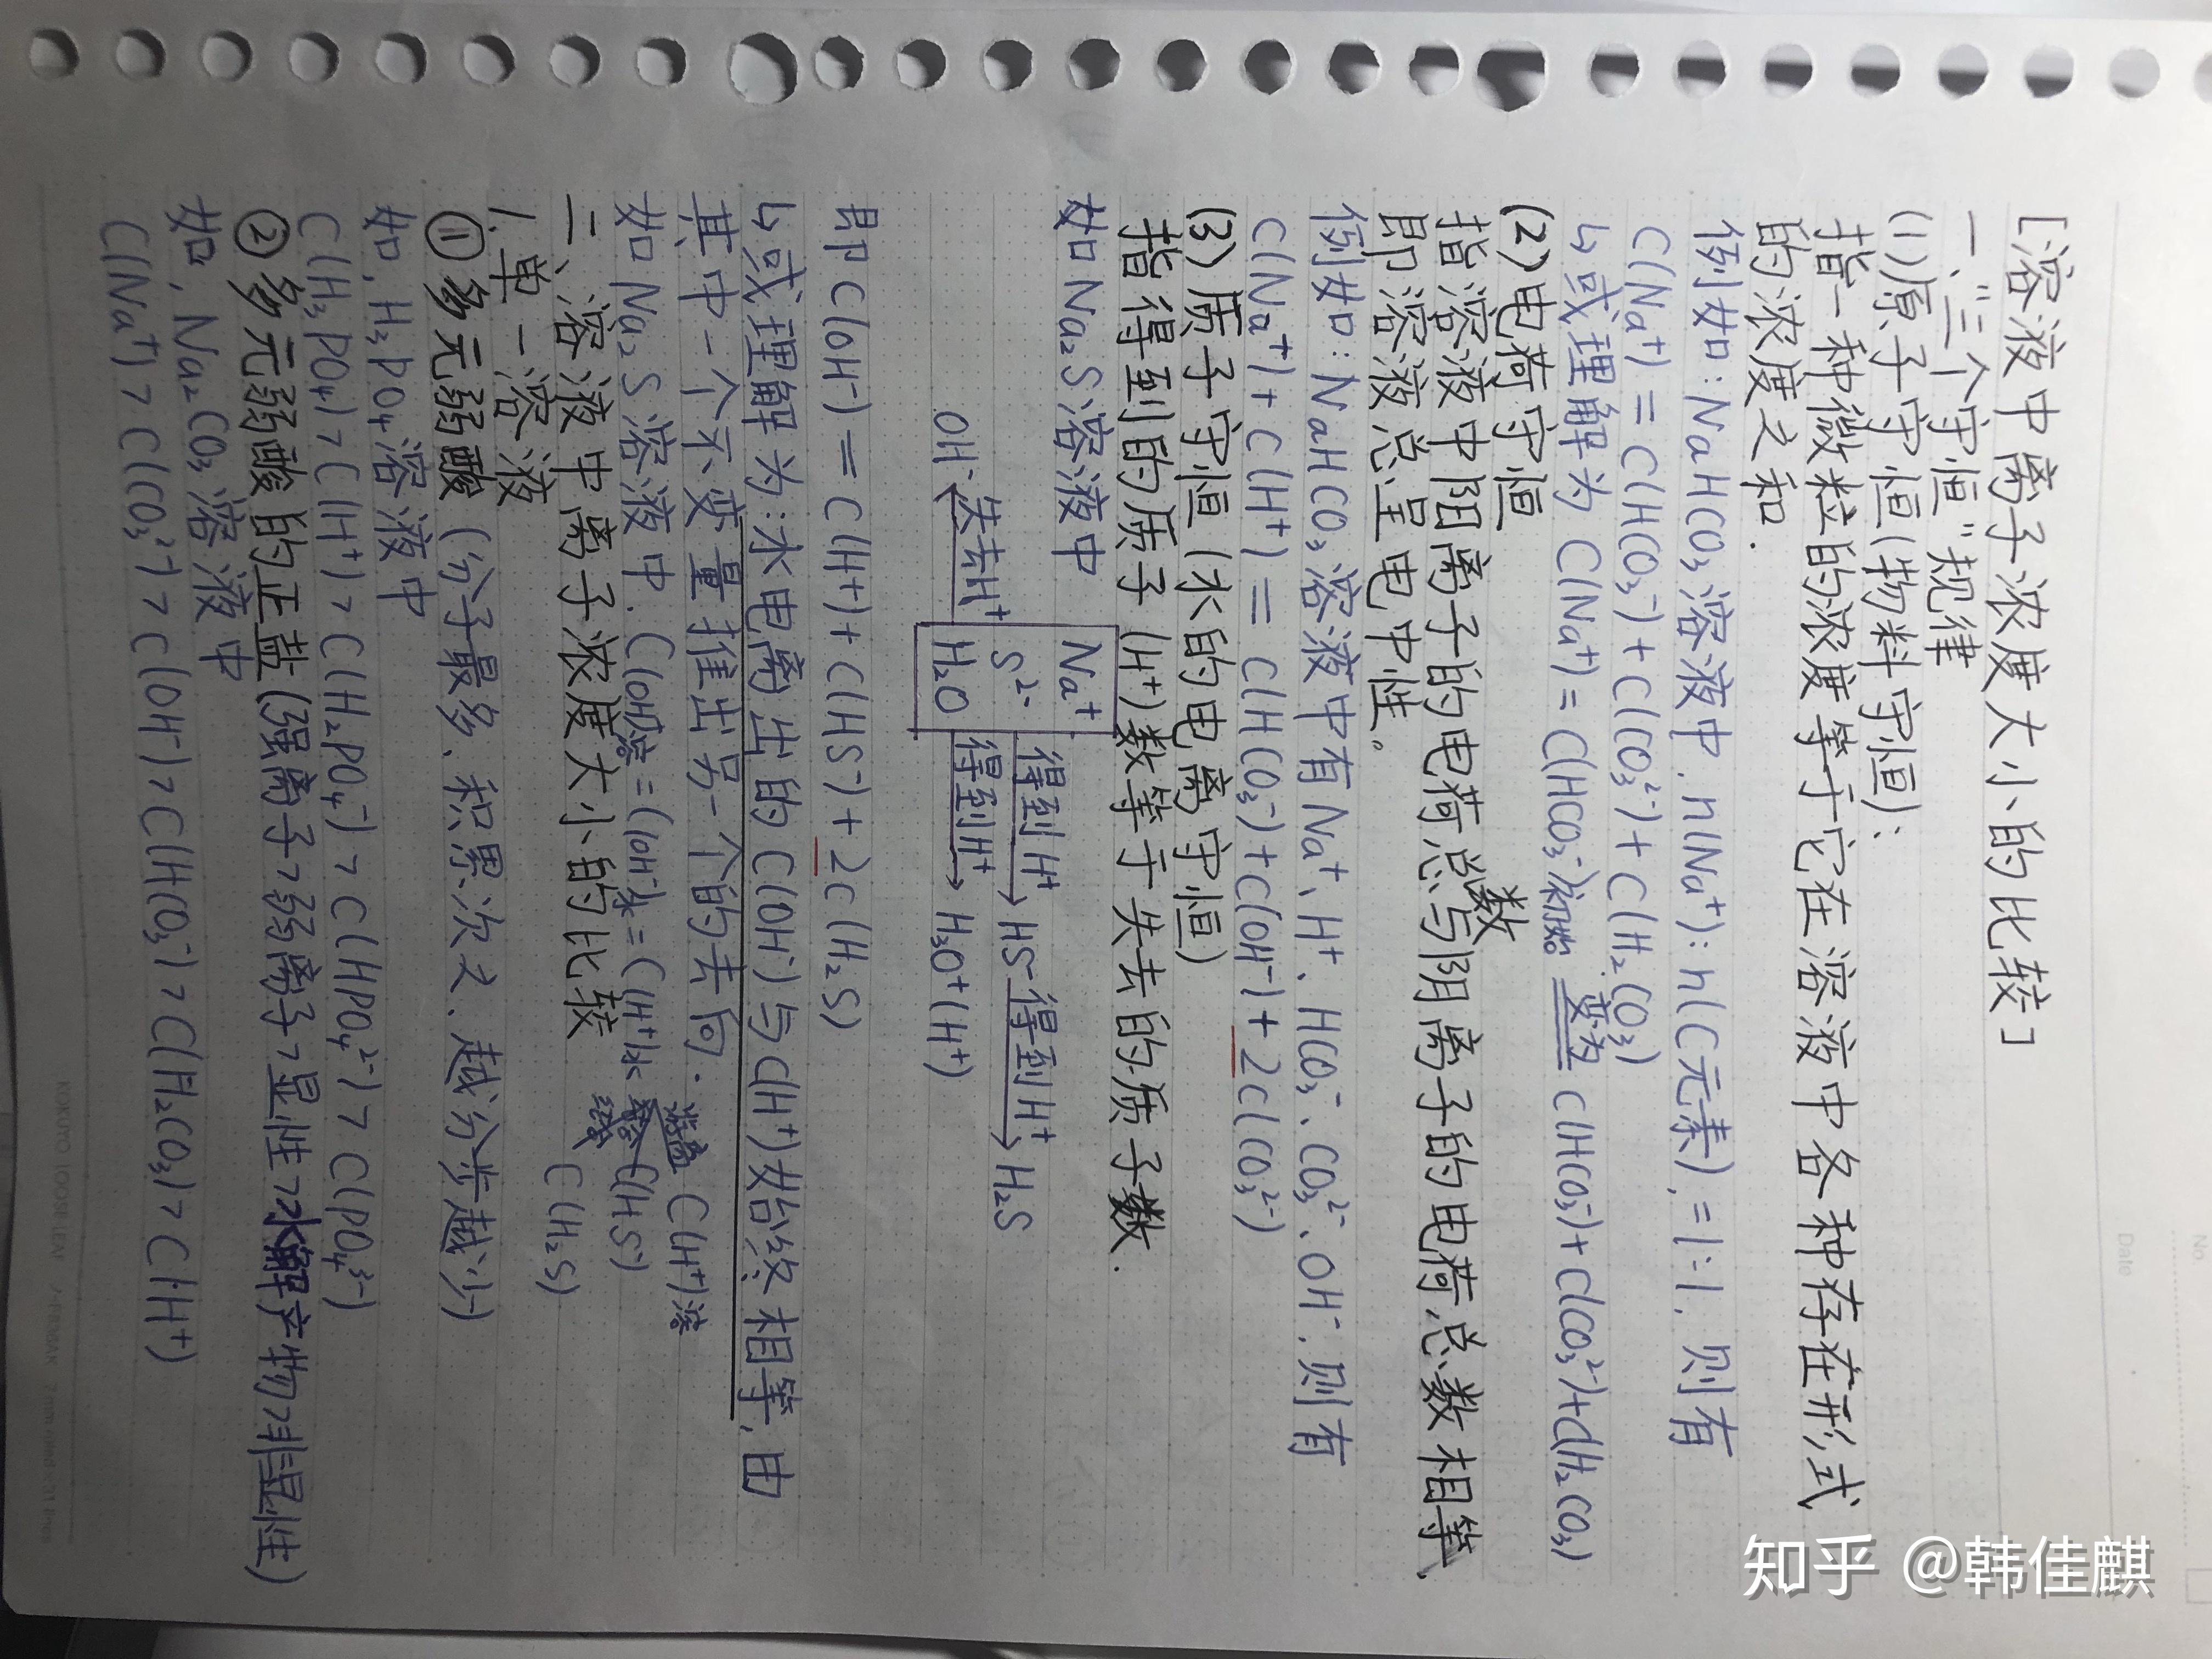 [溶液中离子浓度大小的比较]
一、"三个守恒"规律
(1)原子守恒(物料守恒):
指一种微粒的浓度等于它在溶液中各种存在形式
的浓度之和.
例如:NaHCO₃溶液中.n(Na⁺):n(C元素)=1:1.则有
C(Na⁺)=C(HCO₃⁻)+C(CO₃²⁻)+C(H₂CO₃)
↳或理解为 C(Na⁺)=C(HCO₃⁻)初始 变为 C(HCO₃⁻)+C(CO₃²⁻)+C(H₂CO₃)
(2)电荷守恒
指溶液中阳离子的电荷总数与阴离子的电荷总数相等、
即溶液总呈电中性。
例如:NaHCO₃溶液中有Na⁺、H⁺、HCO₃⁻、CO₃²⁻、OH⁻.则有
C(Na⁺)+C(H⁺)=C(HCO₃⁻)+C(OH⁻)+2C(CO₃²⁻)
(3)质子守恒(水的电离守恒)
指得到的质子(H⁺)数等于失去的质子数.
如Na₂S溶液中
Na⁺
S²⁻ 得到H⁺ HS⁻ 得到H⁺ H₂S
OH⁻ 失去H⁺ H₂O 得到H⁺ H₃O⁺(H⁺)
即C(OH⁻)=C(H⁺)+C(HS⁻)+2C(H₂S)
↳或理解为:水电离出的C(OH⁻)与C(H⁺)始终相等,由
其中一个不变量推出另一个的去向.
如Na₂S溶液中.C(OH⁻)溶=C(OH⁻)水=C(H⁺)水 C(H⁺)溶
C(HS⁻)
C(H₂S)
二、溶液中离子浓度大小的比较
1.单一溶液
①多元弱酸(分子最多、积累次之、越分步越少)
如,H₃PO₄溶液中
C(H₃PO₄)>C(H⁺)>C(H₂PO₄⁻)>C(HPO₄²⁻)>C(PO₄³⁻)
②多元弱酸的正盐(强离子>弱离子>显性>水解产物>非显性)
如,Na₂CO₃溶液中
C(Na⁺)>C(CO₃²⁻)>C(OH⁻)>C(HCO₃⁻)>C(H₂CO₃)>C(H⁺)
No.
Date
知乎 @韩佳麒